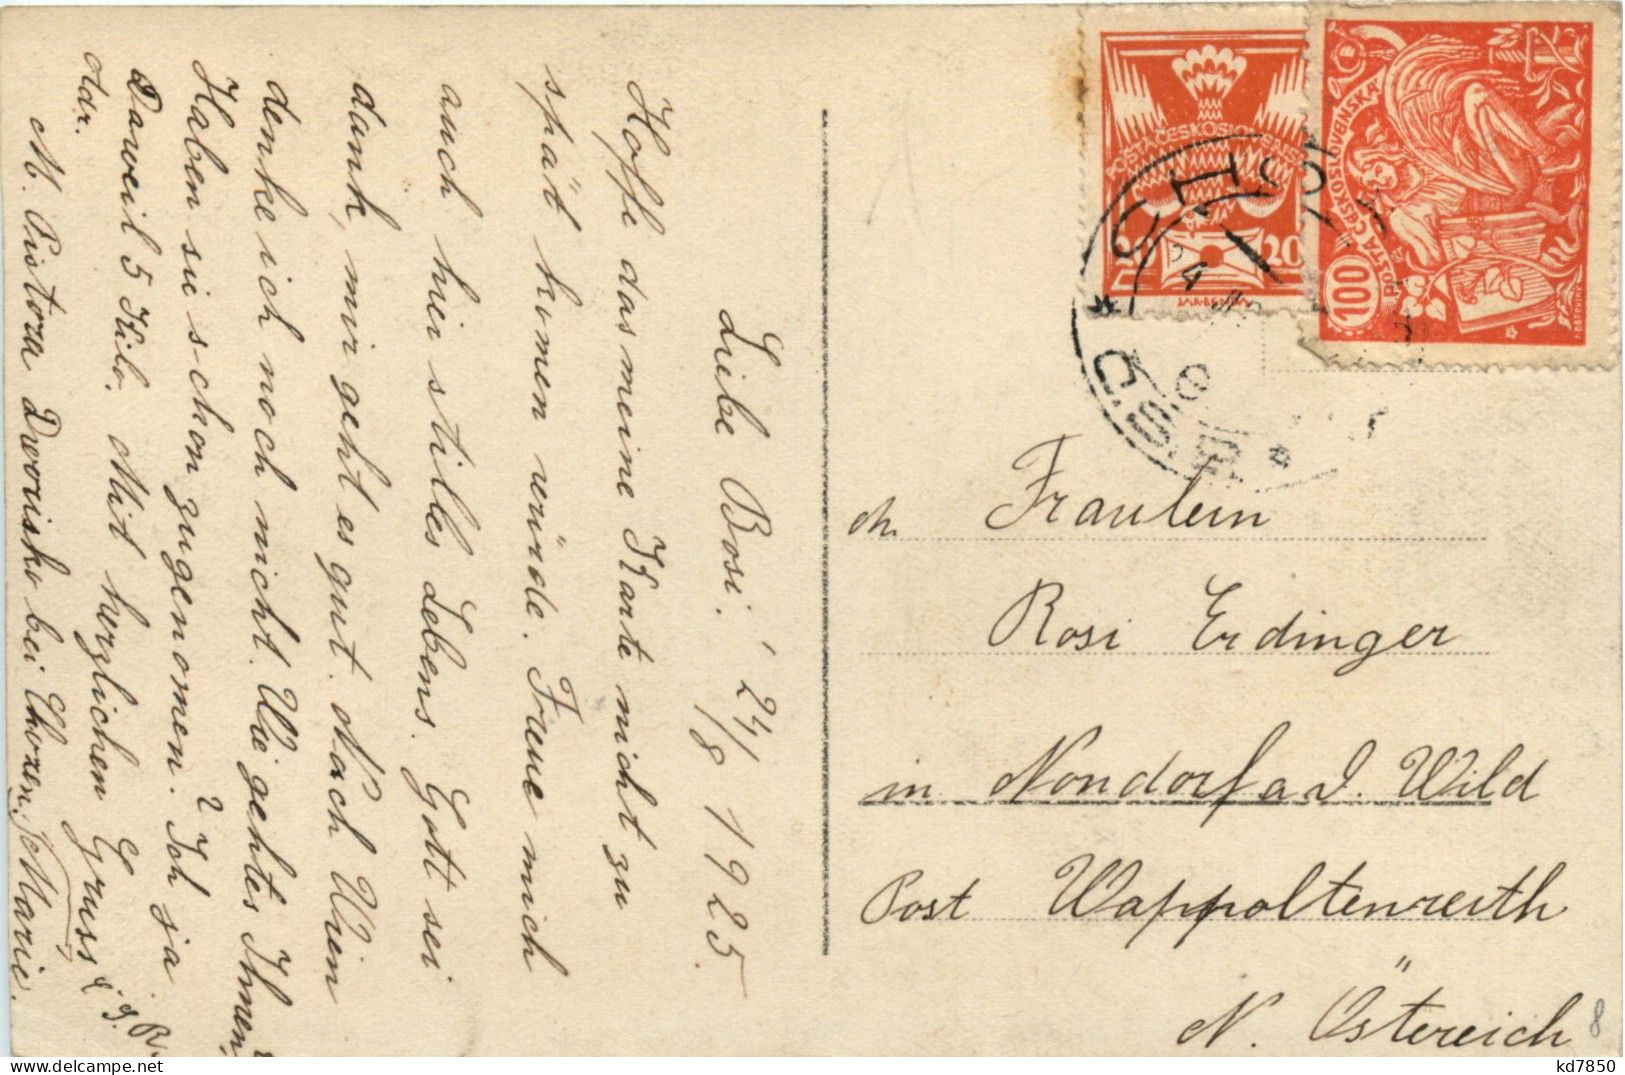 Liebe Rosi! 24/8 1925.
Hoffe das meine Karte nicht zu
spät komen würde. Freue mich
auch hier stilles Lebens. Gott sei
dank, mir geht es gut. Nach Wien
denke ich noch nicht. Wie gehtes Ihnen?
Haben sie s-chon zugenomen? Ich ja
Darweil 5 Kilo. Mit herzlichen Gruss
Adr.
M. Pistora Dvorisko bei Chozen. Marie.
POSTA ČESKOSLOVENSKÁ
20
POŠTA ČESKOSLOVENSKÁ
100
CH
Č.S.P.
An Fraulein
Rosi Erdinger
in Nondorf a. d. Wild
Post Wappoltenreith
N. Östereich
8
kd7850